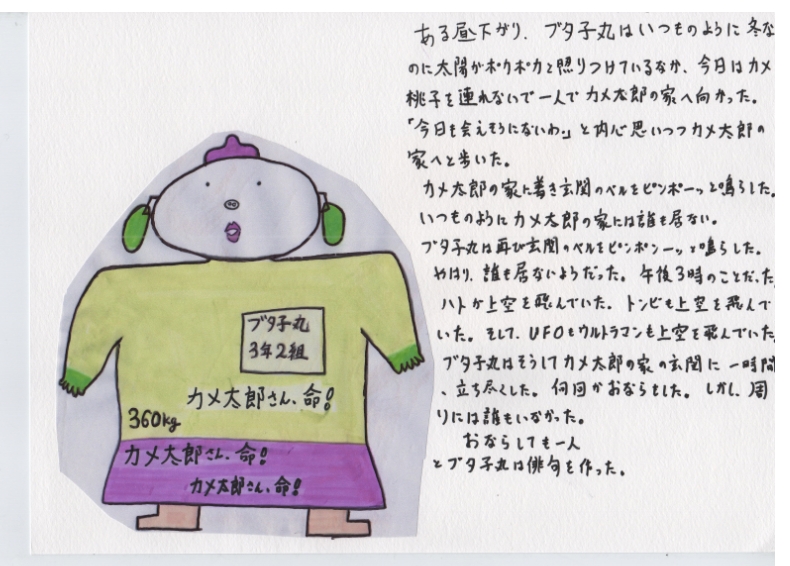 ある昼下がり、ブタ子丸はいつものように冬な
のに太陽がポカポカと照りつけているなか、今日はカメ
桃子を連れないで一人でカメ太郎の家へ向かった。
「今日も会えそうにないわ。」と内心思いつつカメ太郎の
家へと歩いた。
カメ太郎の家に着き玄関のベルをピンポーッと鳴らした。
いつものようにカメ太郎の家には誰も居ない。
ブタ子丸は再び玄関のベルをピンポンーッと鳴らした。
やはり、誰も居ないようだった。午後3時のことだった
ハトが上空を飛んでいた。トンビも上空を飛んで
いた。そして、UFOもウルトラマンも上空を飛んでいた
ブタ子丸はそうしてカメ太郎の家の玄関に一時間
、立ち尽くした。何回かおならもした。しかし、周
りには誰もいなかった。
おならしても一人
とブタ子丸は俳句を作った。
ブタ子丸
3年2組
カメ太郎さん、命!
360kg
カメ太郎さん、命!
カメ太郎さん、命!